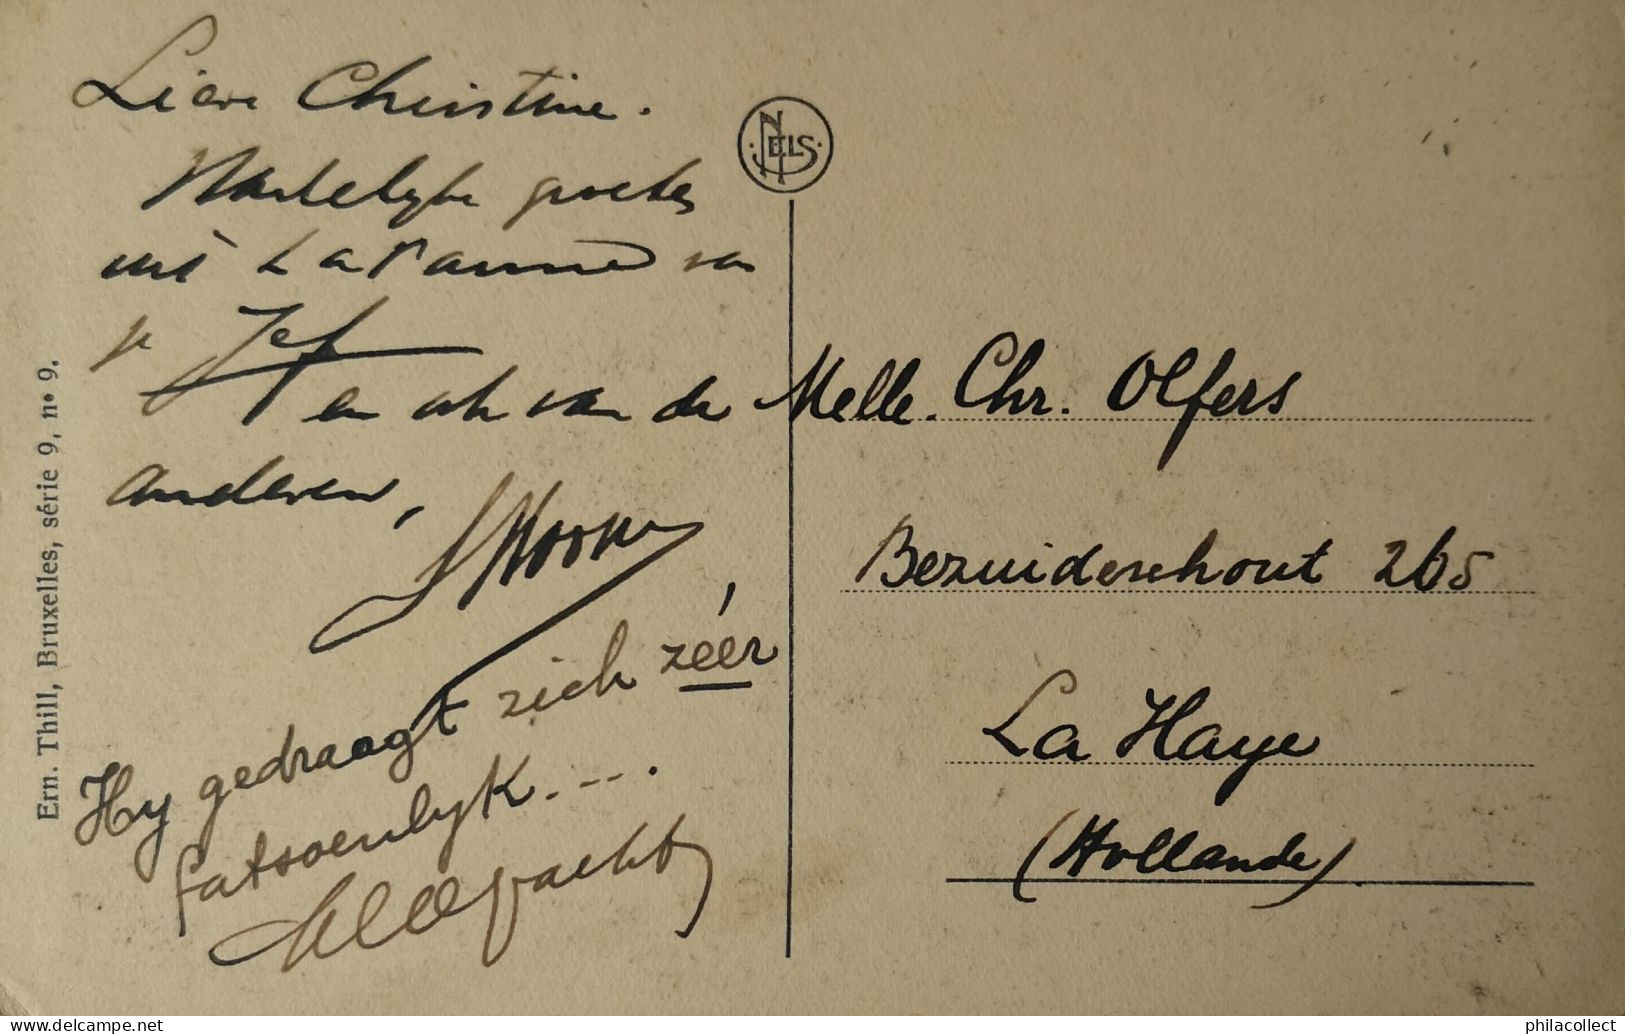 Lieve Christine.
Hartelyke groeten
uit La Panne van
je Jef
en ook van de
anderen,
Hy gedraagt zich zéér
fatsoenlyk....
NELS
Melle. Chr. Olfers
Bezuidenhout 265
La Haye
(Hollande)
Ern. Thill, Bruxelles, série 9, n° 9.
philacollect